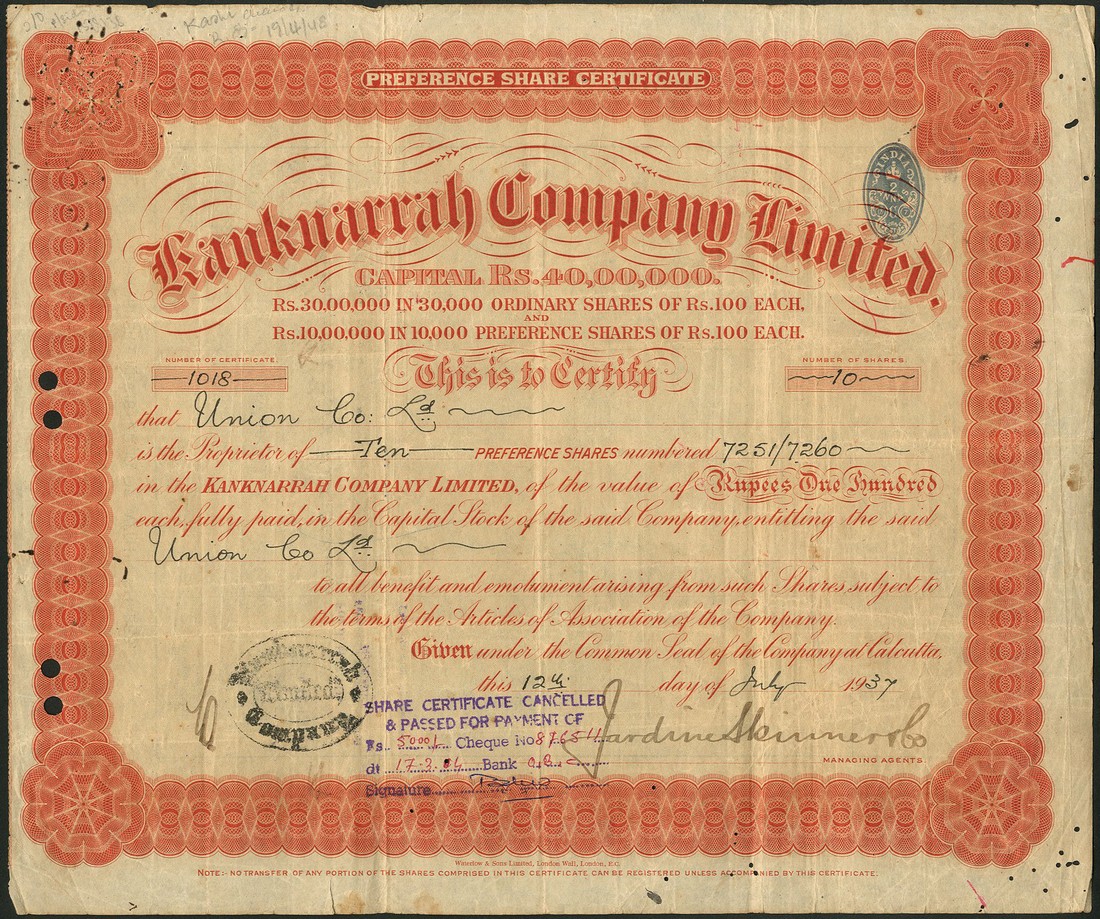 19/4/48
PREFERENCE SHARE CERTIFICATE
INDIA
2
Kanknarrah Company Limited.
CAPITAL RS.40,00,000.
RS.30.00,000 IN 30,000 ORDINARY SHARES OF RS.100 EACH,
AND
RS.10,00,000 IN 10,000 PREFERENCE SHARES OF RS.100 EACH.
NUMBER OF CERTIFICATE.
NUMBER OF SHARES.
1018
This is to Certify
10
that Union Co: Ld
is the Proprietor of Ten PREFERENCE SHARES numbered 7251/7260
in the KANKNARRAH COMPANY LIMITED, of the value of Rupees One Hundred
each, fully paid, in the Capital Stock of the said Company, entitling the said
Union Co Ld
to all benefit and emolument arising from such Shares subject to
the terms of the Articles of Association of the Company.
Given under the Common Seal of the Company at Calcutta,
this 12th day of July 1937
Kanknarrah Company Limited
SHARE CERTIFICATE CANCELLED
& PASSED FOR PAYMENT OF
Rs. 500/ Cheque No
dt 17-2-64 Bank
Signature
Jardine Skinner & Co
MANAGING AGENTS.
Waterlow & Sons Limited, London Wall, London, E.C.
NOTE:- NO TRANSFER OF ANY PORTION OF THE SHARES COMPRISED IN THIS CERTIFICATE CAN BE REGISTERED UNLESS ACCOMPANIED BY THIS CERTIFICATE.